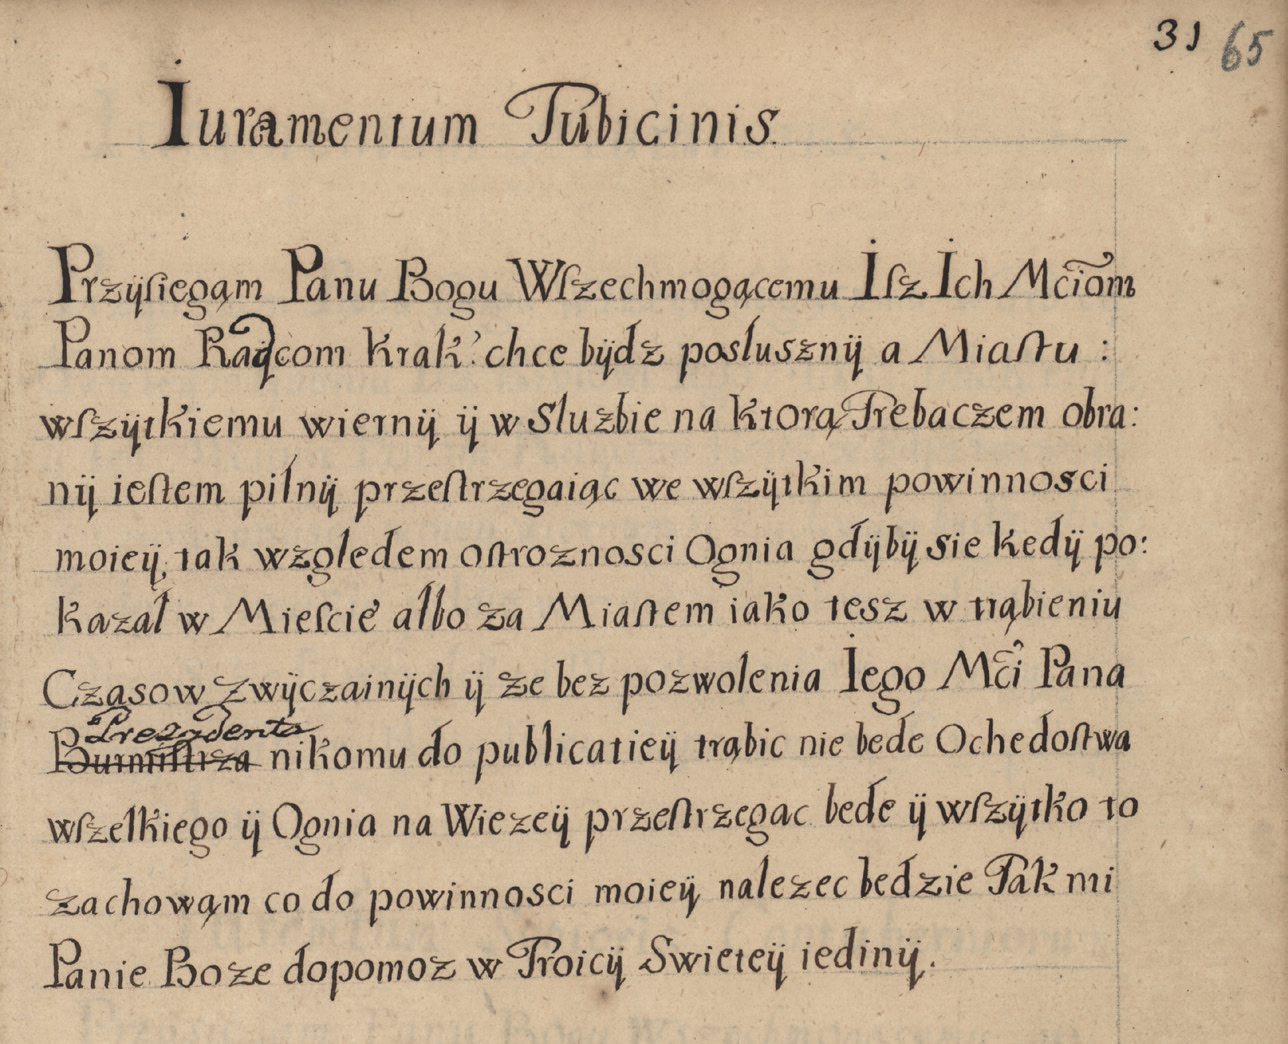 31 65
Iuramentum Tubicinis.
Przÿsiegąm Panu Bogu Wszechmogącemu Isz Ich Mciom
Panom Raÿcom Krak: chce bÿdz posłusznÿ a Miastu :
wszÿtkiemu wiernÿ ÿ w Sluzbie na ktorą Trebaczem obra:
nÿ iestem pilnÿ przestrzegaiąc we wszÿtkim powinnosci
moieÿ, tak wzgledem ostroznosci Ognia gdÿbÿ sie kedÿ po:
kazał w Miescie albo za Miastem iako tesz w trąbieniu
Czasow zwÿczainÿch ÿ ze bez pozwolenia Iego Mci Pana
Prezydenta
Burmistrza nikomu do publicatieÿ trąbic nie bede Ochedostwa
wszelkiego ÿ Ognia na Wiezeÿ przestrzegac bede ÿ wszÿtko to
zachowąm co do powinnosci moieÿ nalezec bedzie Tak mi
Panie Boze dopomoz w Troicÿ Swieteÿ iedinÿ.